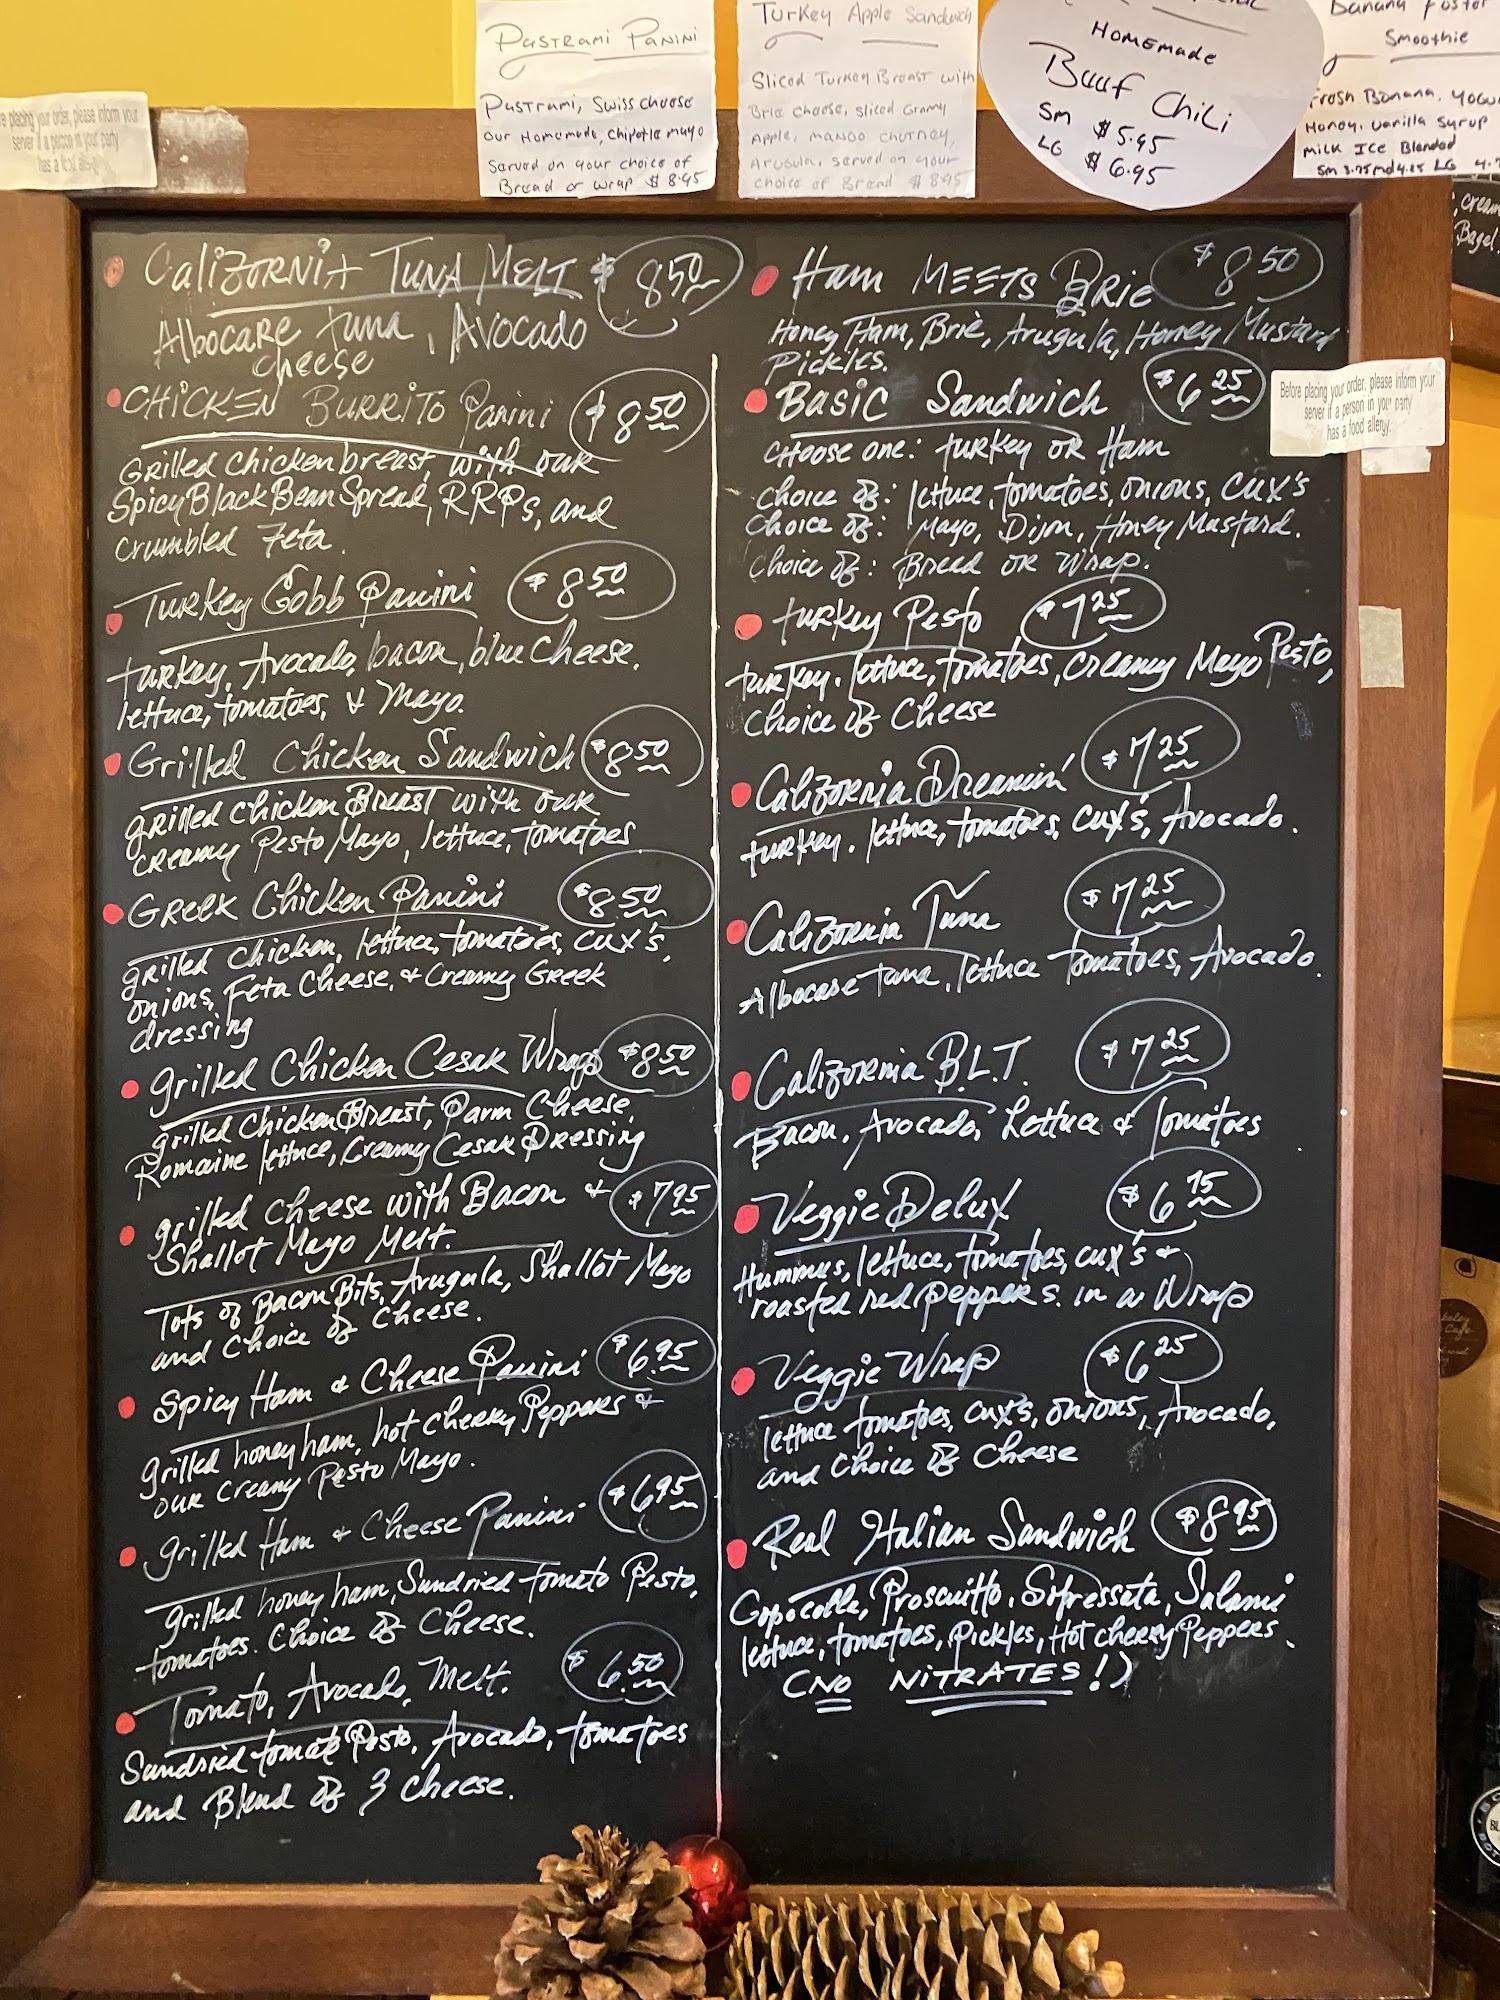 Pastrami Panini
Pastrami, Swiss cheese
our Homemade, Chipotle mayo
Served on your choice of
Bread or wrap $8.95
Turkey Apple Sandwich
Sliced Turkey Breast with
Brie cheese, sliced Granny
Apple, mango chutney,
Arugula, served on your
choice of Bread $8.95
Homemade
Beef Chili
SM $5.95
LG $6.95
Banana Foster
Smoothie
Fresh Banana, Yogurt
Honey, vanilla syrup
milk Ice Blended
Sm 3.75 md 4.25 LG 4.7
e placing your order, please inform your
server if a person in your party
has a food allergy.
, cream
Bagel.
California Tuna Melt $8.50
Albocare tuna, Avocado
cheese
Chicken Burrito Panini $8.50
Grilled chicken breast, with our
Spicy Black Bean Spread, RRPs, and
crumbled Feta.
Turkey Cobb Panini $8.50
turkey, Avocado, bacon, blue Cheese.
lettuce, tomatoes, & Mayo.
Grilled Chicken Sandwich $8.50
grilled chicken Breast with our
creamy Pesto Mayo, lettuce, tomatoes
Greek Chicken Panini $8.50
grilled chicken, lettuce, tomatoes, cux's,
onions, Feta Cheese, & Creamy Greek
dressing
grilled Chicken Cesar Wraps $8.50
grilled Chicken Breast, Parm Cheese,
Romaine lettuce, Creamy Cesar Dressing
grilled cheese with Bacon & $7.95
Shallot Mayo Melt.
Tots of Bacon Bits, Arugula, Shallot Mayo
and Choice of Cheese.
Spicy Ham & Cheese Panini $6.95
grilled honey ham, hot cherry Peppers &
our creamy Pesto Mayo.
grilled Ham & Cheese Panini $6.95
grilled honey ham, Sundried tomato Pesto,
tomatoes. Choice of Cheese.
Tomato, Avocado, Melt. $6.50
Sundried tomato Pesto, Avocado, tomatoes
and Blend of 3 cheese.
Ham Meets Brie $8.50
Honey Ham, Brie, Arugula, Honey Mustard
Pickles.
Basic Sandwich $6.25
Choose one: turkey or Ham
choice of: lettuce, tomatoes, onions, cux's
choice of: Mayo, Dijon, Honey Mustard.
choice of: Bread or Wrap.
turkey Pesto $7.25
turkey, lettuce, tomatoes, Creamy Mayo Pesto,
Choice of Cheese
California Dreamin' $7.25
turkey, lettuce, tomatoes, cux's, Avocado.
California Tuna $7.25
Albocare tuna, lettuce tomatoes, Avocado.
California B.L.T. $7.25
Bacon, Avocado, Lettuce & Tomatoes
Veggie Delux $6.75
Hummus, lettuce, tomatoes, cux's &
roasted red peppers in a Wrap
Veggie Wrap $6.25
lettuce tomatoes, cux's, onions, Avocado,
and choice of Cheese
Real Italian Sandwich $8.95
Capocolle, Proscuitto, Sopressata, Salami
lettuce, tomatoes, Pickles, Hot cherry Peppers.
(NO NITRATES!)
Before placing your order, please inform your
server if a person in your party
has a food allergy.